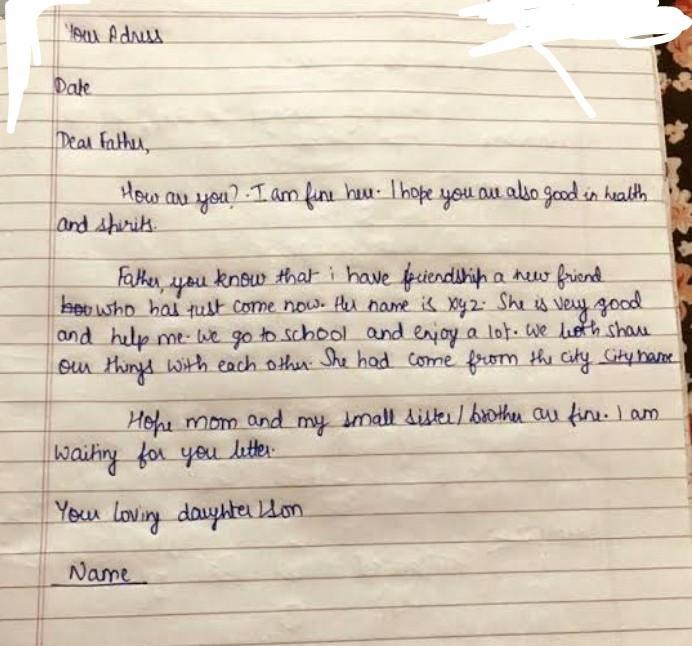 Your Adress
Date
Dear Father,
How are you? . I am fine here. I hope you are also good in health
and spirits.
Father, you know that i have friendship a new friend
who has just come now. Her name is xyz. She is very good
and help me. We go to school and enjoy a lot. We both share
our things with each other. She had come from the city City name
Hope mom and my small sister/brother are fine. I am
waiting for you letter.
Your loving daughter/son
Name